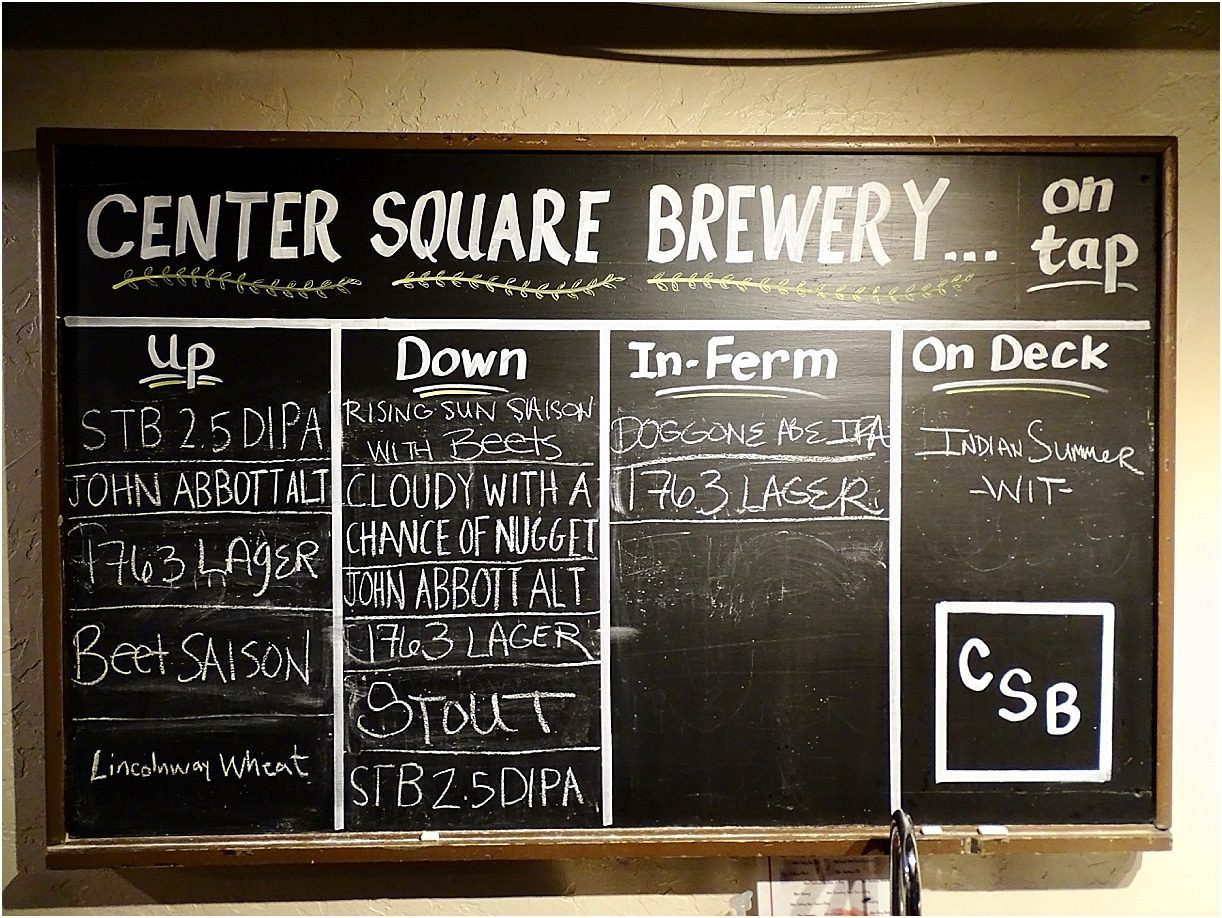 CENTER SQUARE BREWERY... on
tap
Up
STB 2.5 DIPA
JOHN ABBOTT ALT
1763 LAgER
Beet SAISON
Lincolnway Wheat
Down
RISING SUN SIAISON
WITH Beets
CLOUDY WITH A
CHANCE OF NUGGET
JOHN ABBOTT ALT
1763 LAGER
STOUT
STB 2.5 DIPA
In-Ferm
DOGGONE ABE IPA
1763 LAGER
On Deck
INDIAN SUMMER
-WIT-
CSB